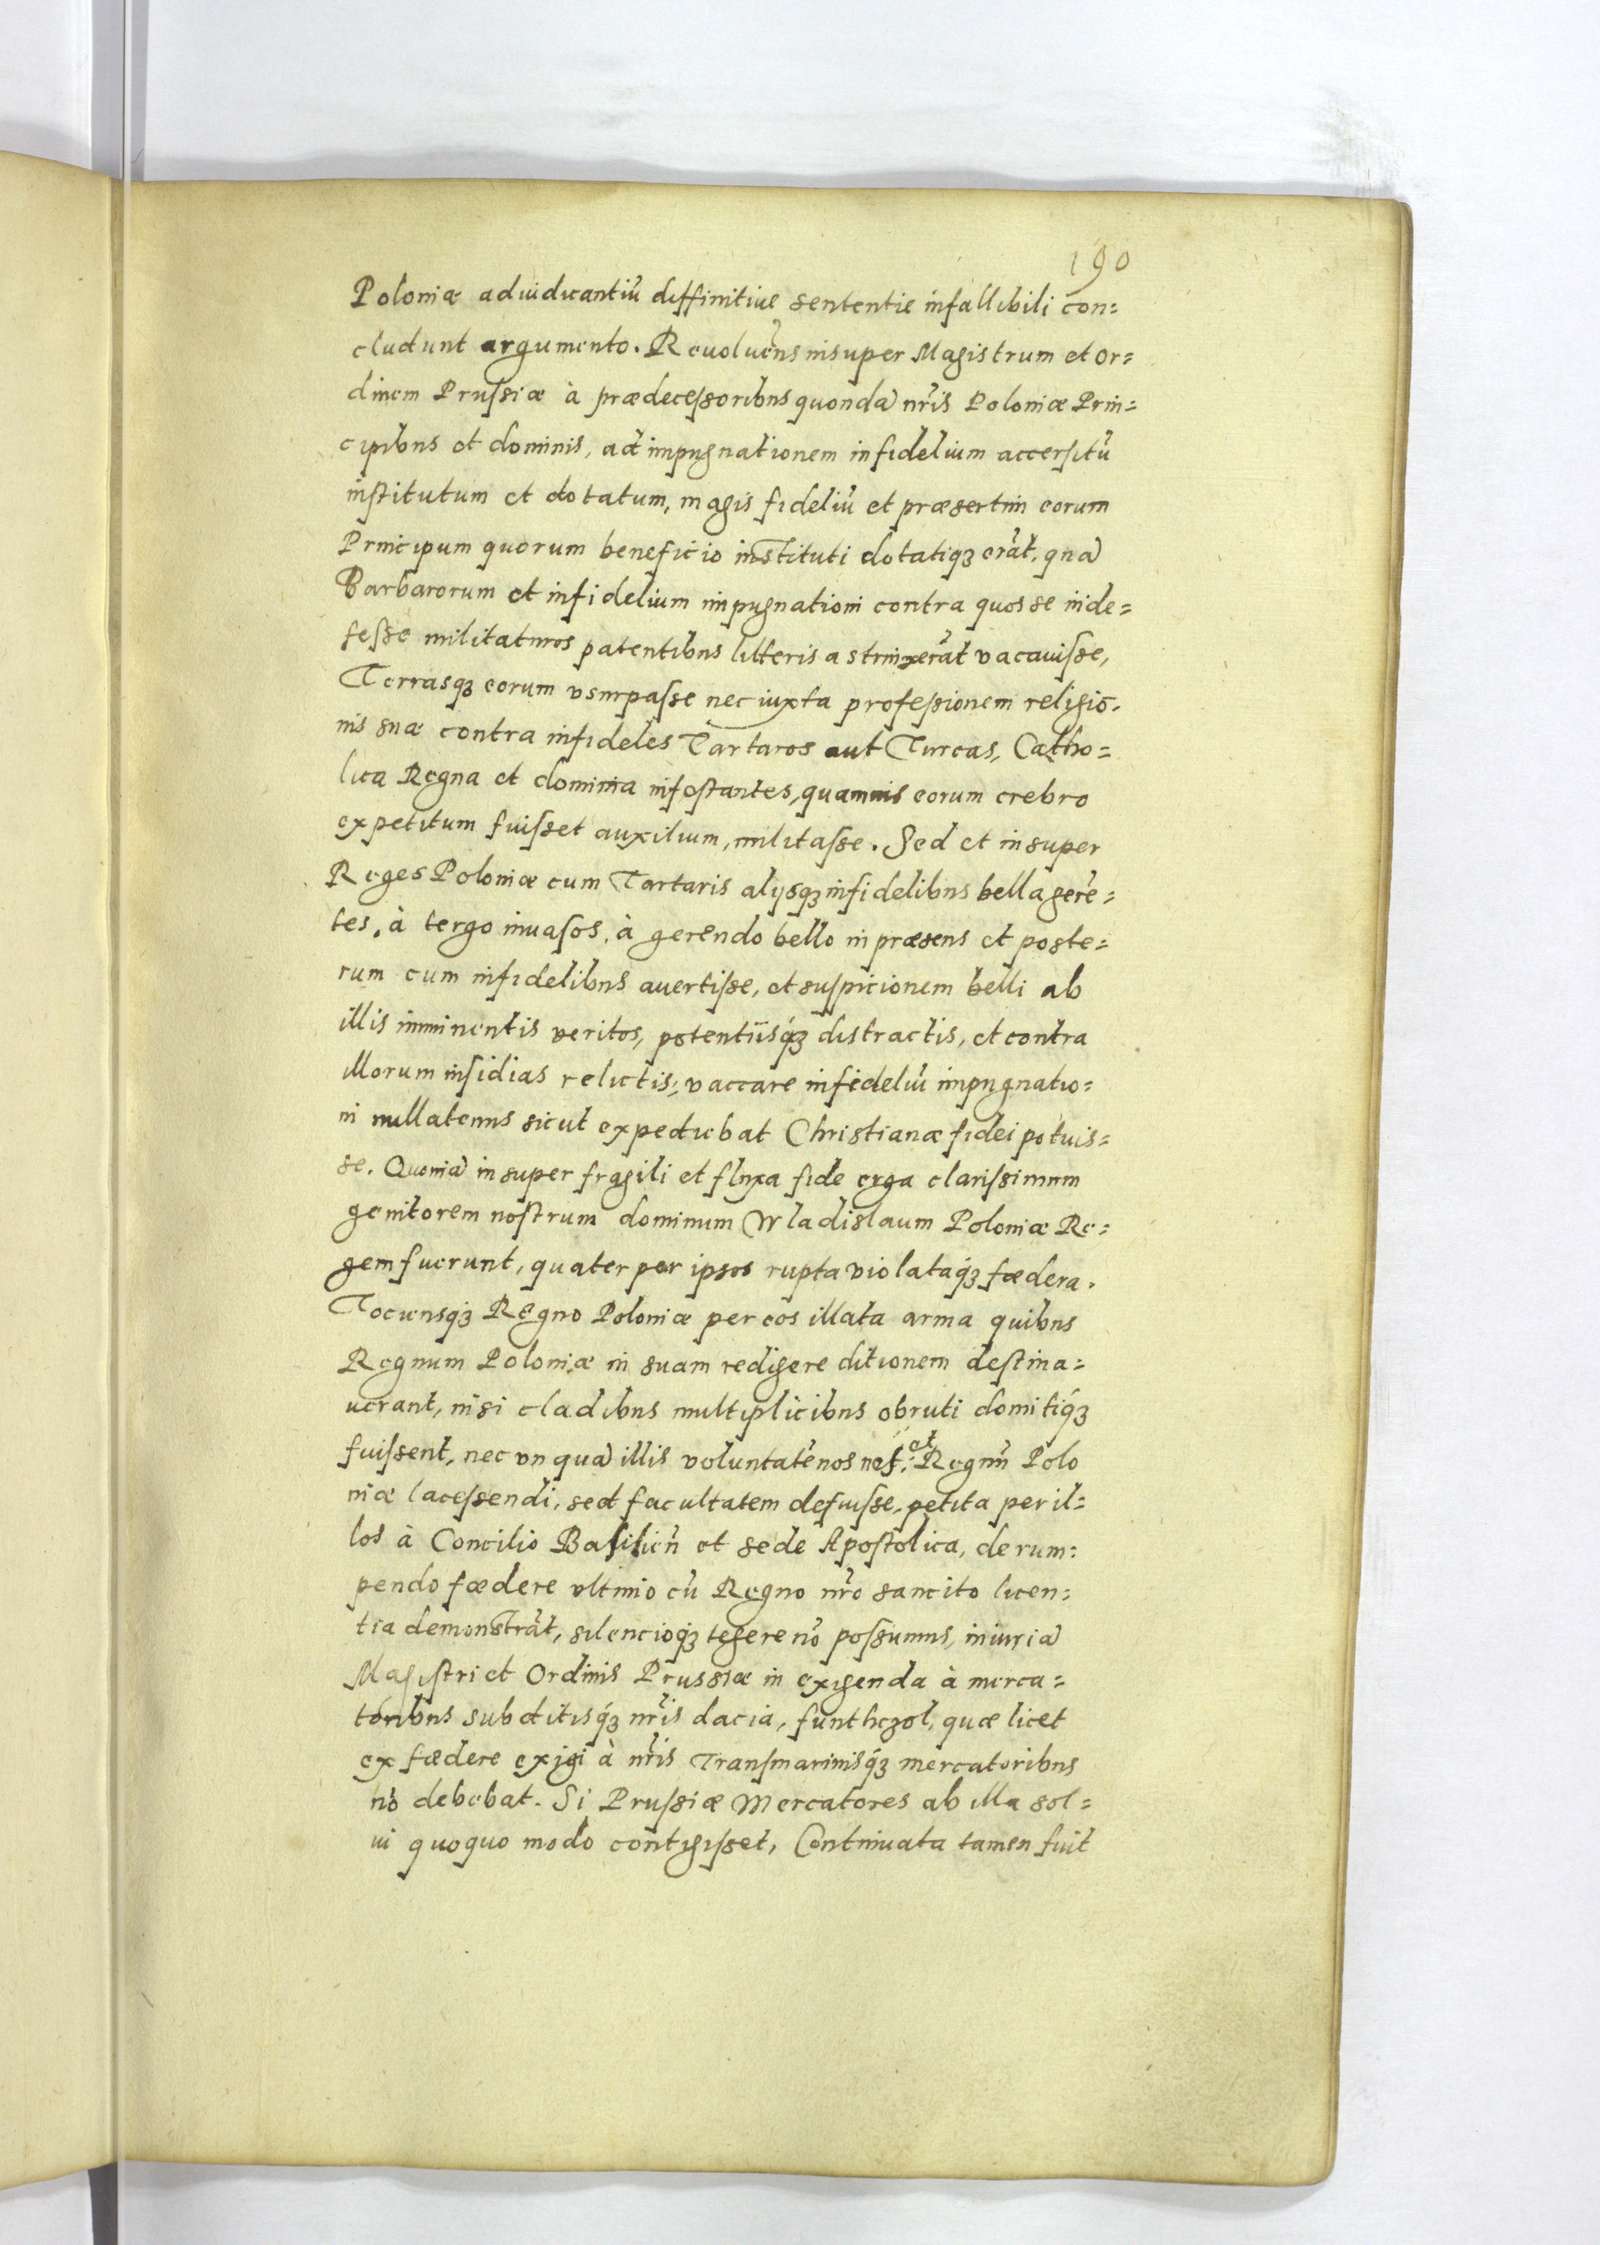 190
Poloniæ adiudicantiũ diffinitiue sententie infallibili con=
cludunt argumento. Reuoluẽns insuper Magistrum et Or=
dinem Prussiæ à prædecessoribus quondã nr̃is Poloniæ Prin=
cipibus et dominis, ad impugnationem infidelium accersitũ
institutum et dotatum, magis fideliũ et præsertim eorum
Principum quorum beneficio instituti dotatiqȝ erãt, quã
Barbarorum et infidelium impugnationi contra quos se inde=
fesse militaturos patentibus litteris astrinxerãt vacauisse,
Terrasqȝ eorum vsurpasse nec iuxta professionem religio=
nis suæ contra infideles Tartaros aut Turcas, Catho=
lica Regna et dominia infestantes, quamuis eorum crebro
expetitum fuisset auxilium, militasse. Sed et insuper
Reges Poloniæ cum Tartaris alijsqȝ infidelibus bella gerẽ=
tes, à tergo inuasos, à gerendo bello in præsens et poste=
rum cum infidelibus auertisse, et suspicionem belli ab
illis imminentis veritos, potentiisqȝ distractis, et contra
illorum insidias relictis, vaccare infideliũ impugnatio=
ni nullatenus sicut expediebat Christianæ fidei potuis=
se. Quoniã insuper fragili et fluxa fide erga clarissimum
genitorem nostrum dominum Wladislaum Poloniæ Re=
gem fuerunt, quater per ipsos rupta violataqȝ fœdera.
Tociensqȝ Regno Poloniæ per eos illata arma quibus
Regnum Poloniæ in suam redigere ditionem destina=
uerant, nisi cladibus multiplicibus obruti domitiqȝ
fuissent, nec vnquã illis voluntatẽ nos et Regnũ Polo
niæ lacessendi, sed facultatem defuisse, petita per il=
los à Concilio Basilieñ et sede Apostolica, de rum=
pendo fœdere vltimo cũ Regno nr̃o sancito licen=
tia demonstrãt, silencioqȝ tegere nõ possumus, iniuriã
Magistri et Ordinis Prussiæ in exigenda à merca=
toribus subditisqȝ nr̃is dacia, funthczol, quæ licet
ex fœdere exigi à nr̃is Transmarinisqȝ mercatoribus
nõ debebat. Si Prussiæ Mercatores ab illa sol=
ui quoquo modo contigisset, Continuata tamen fuit